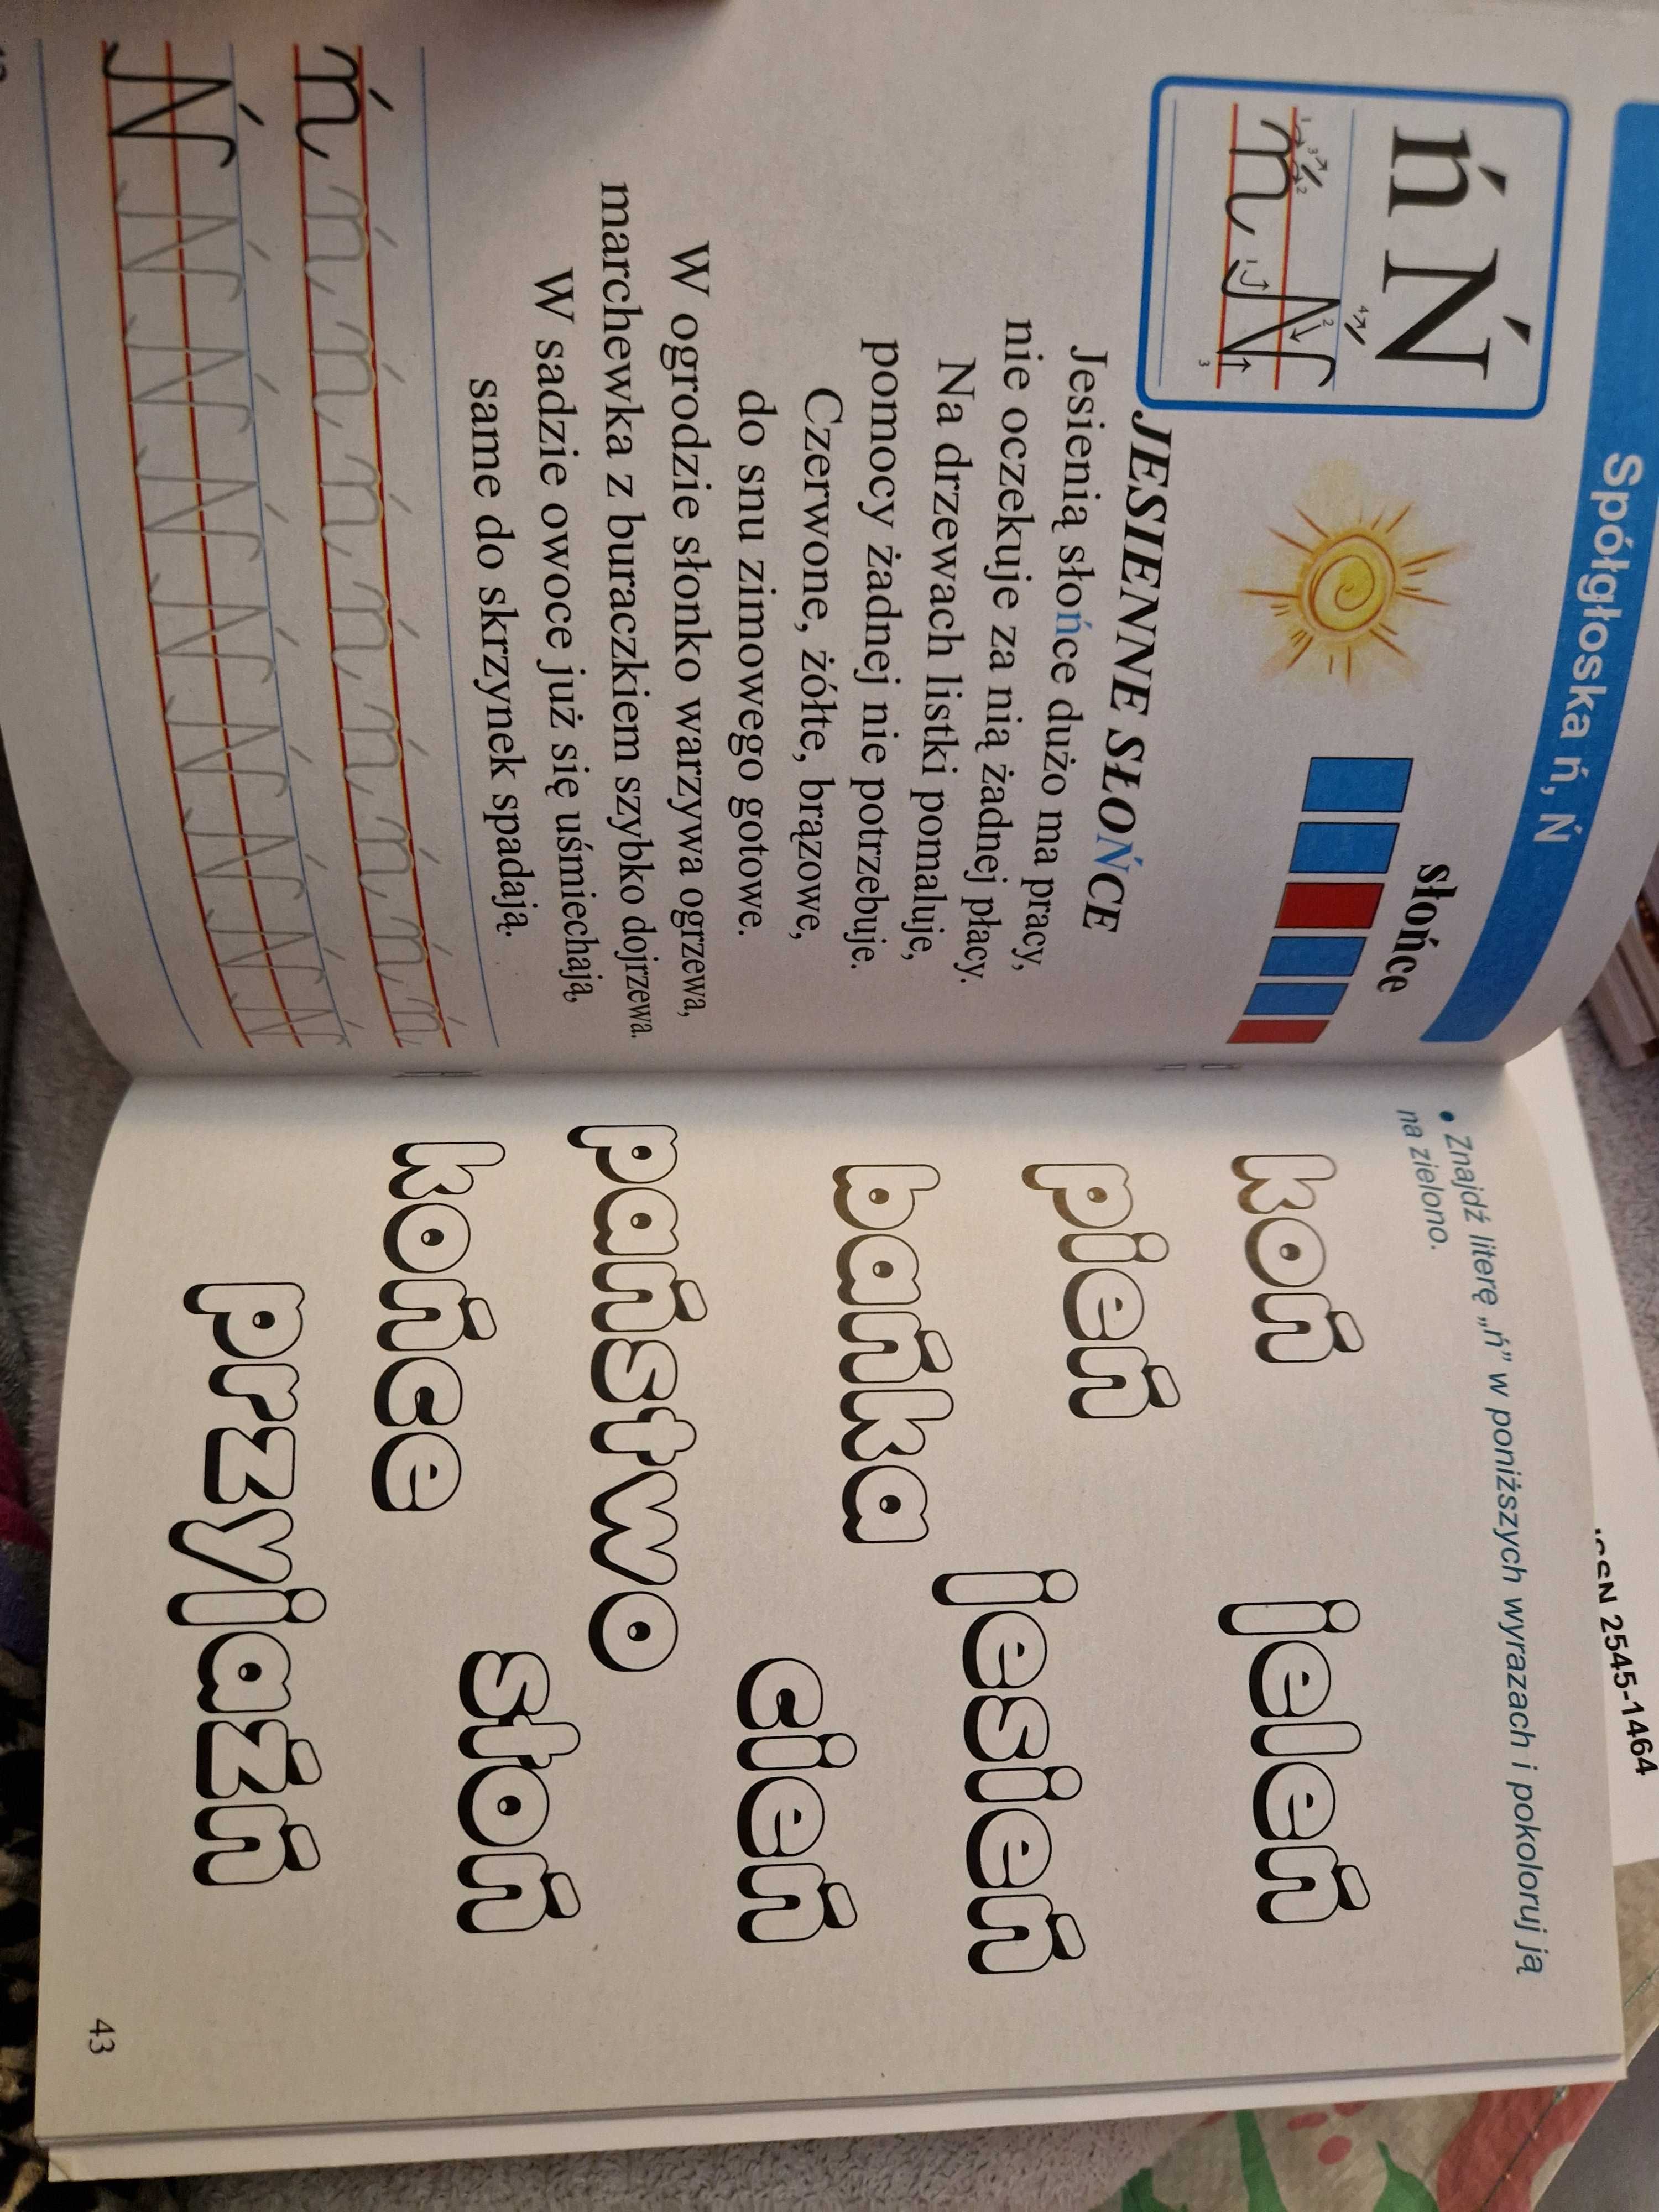 Spółgłoska ń, Ń
ń Ń
ń Ń
słońce
JESIENNE SŁOŃCE
Jesienią słońce dużo ma pracy,
nie oczekuje za nią żadnej płacy.
Na drzewach listki pomaluje,
pomocy żadnej nie potrzebuje.
Czerwone, żółte, brązowe,
do snu zimowego gotowe.
W ogrodzie słonko warzywa ogrzewa,
marchewka z buraczkiem szybko dojrzewa.
W sadzie owoce już się uśmiechają,
same do skrzynek spadają.
ń ń ń ń ń ń ń ń
Ń Ń Ń Ń Ń Ń Ń Ń
• Znajdź literę „ń” w poniższych wyrazach i pokoloruj ją
na zielono.
koń jeleń
pień jesień
bańka cień
państwo słoń
końce
przyjaźń
43
ISSN 2545-1464